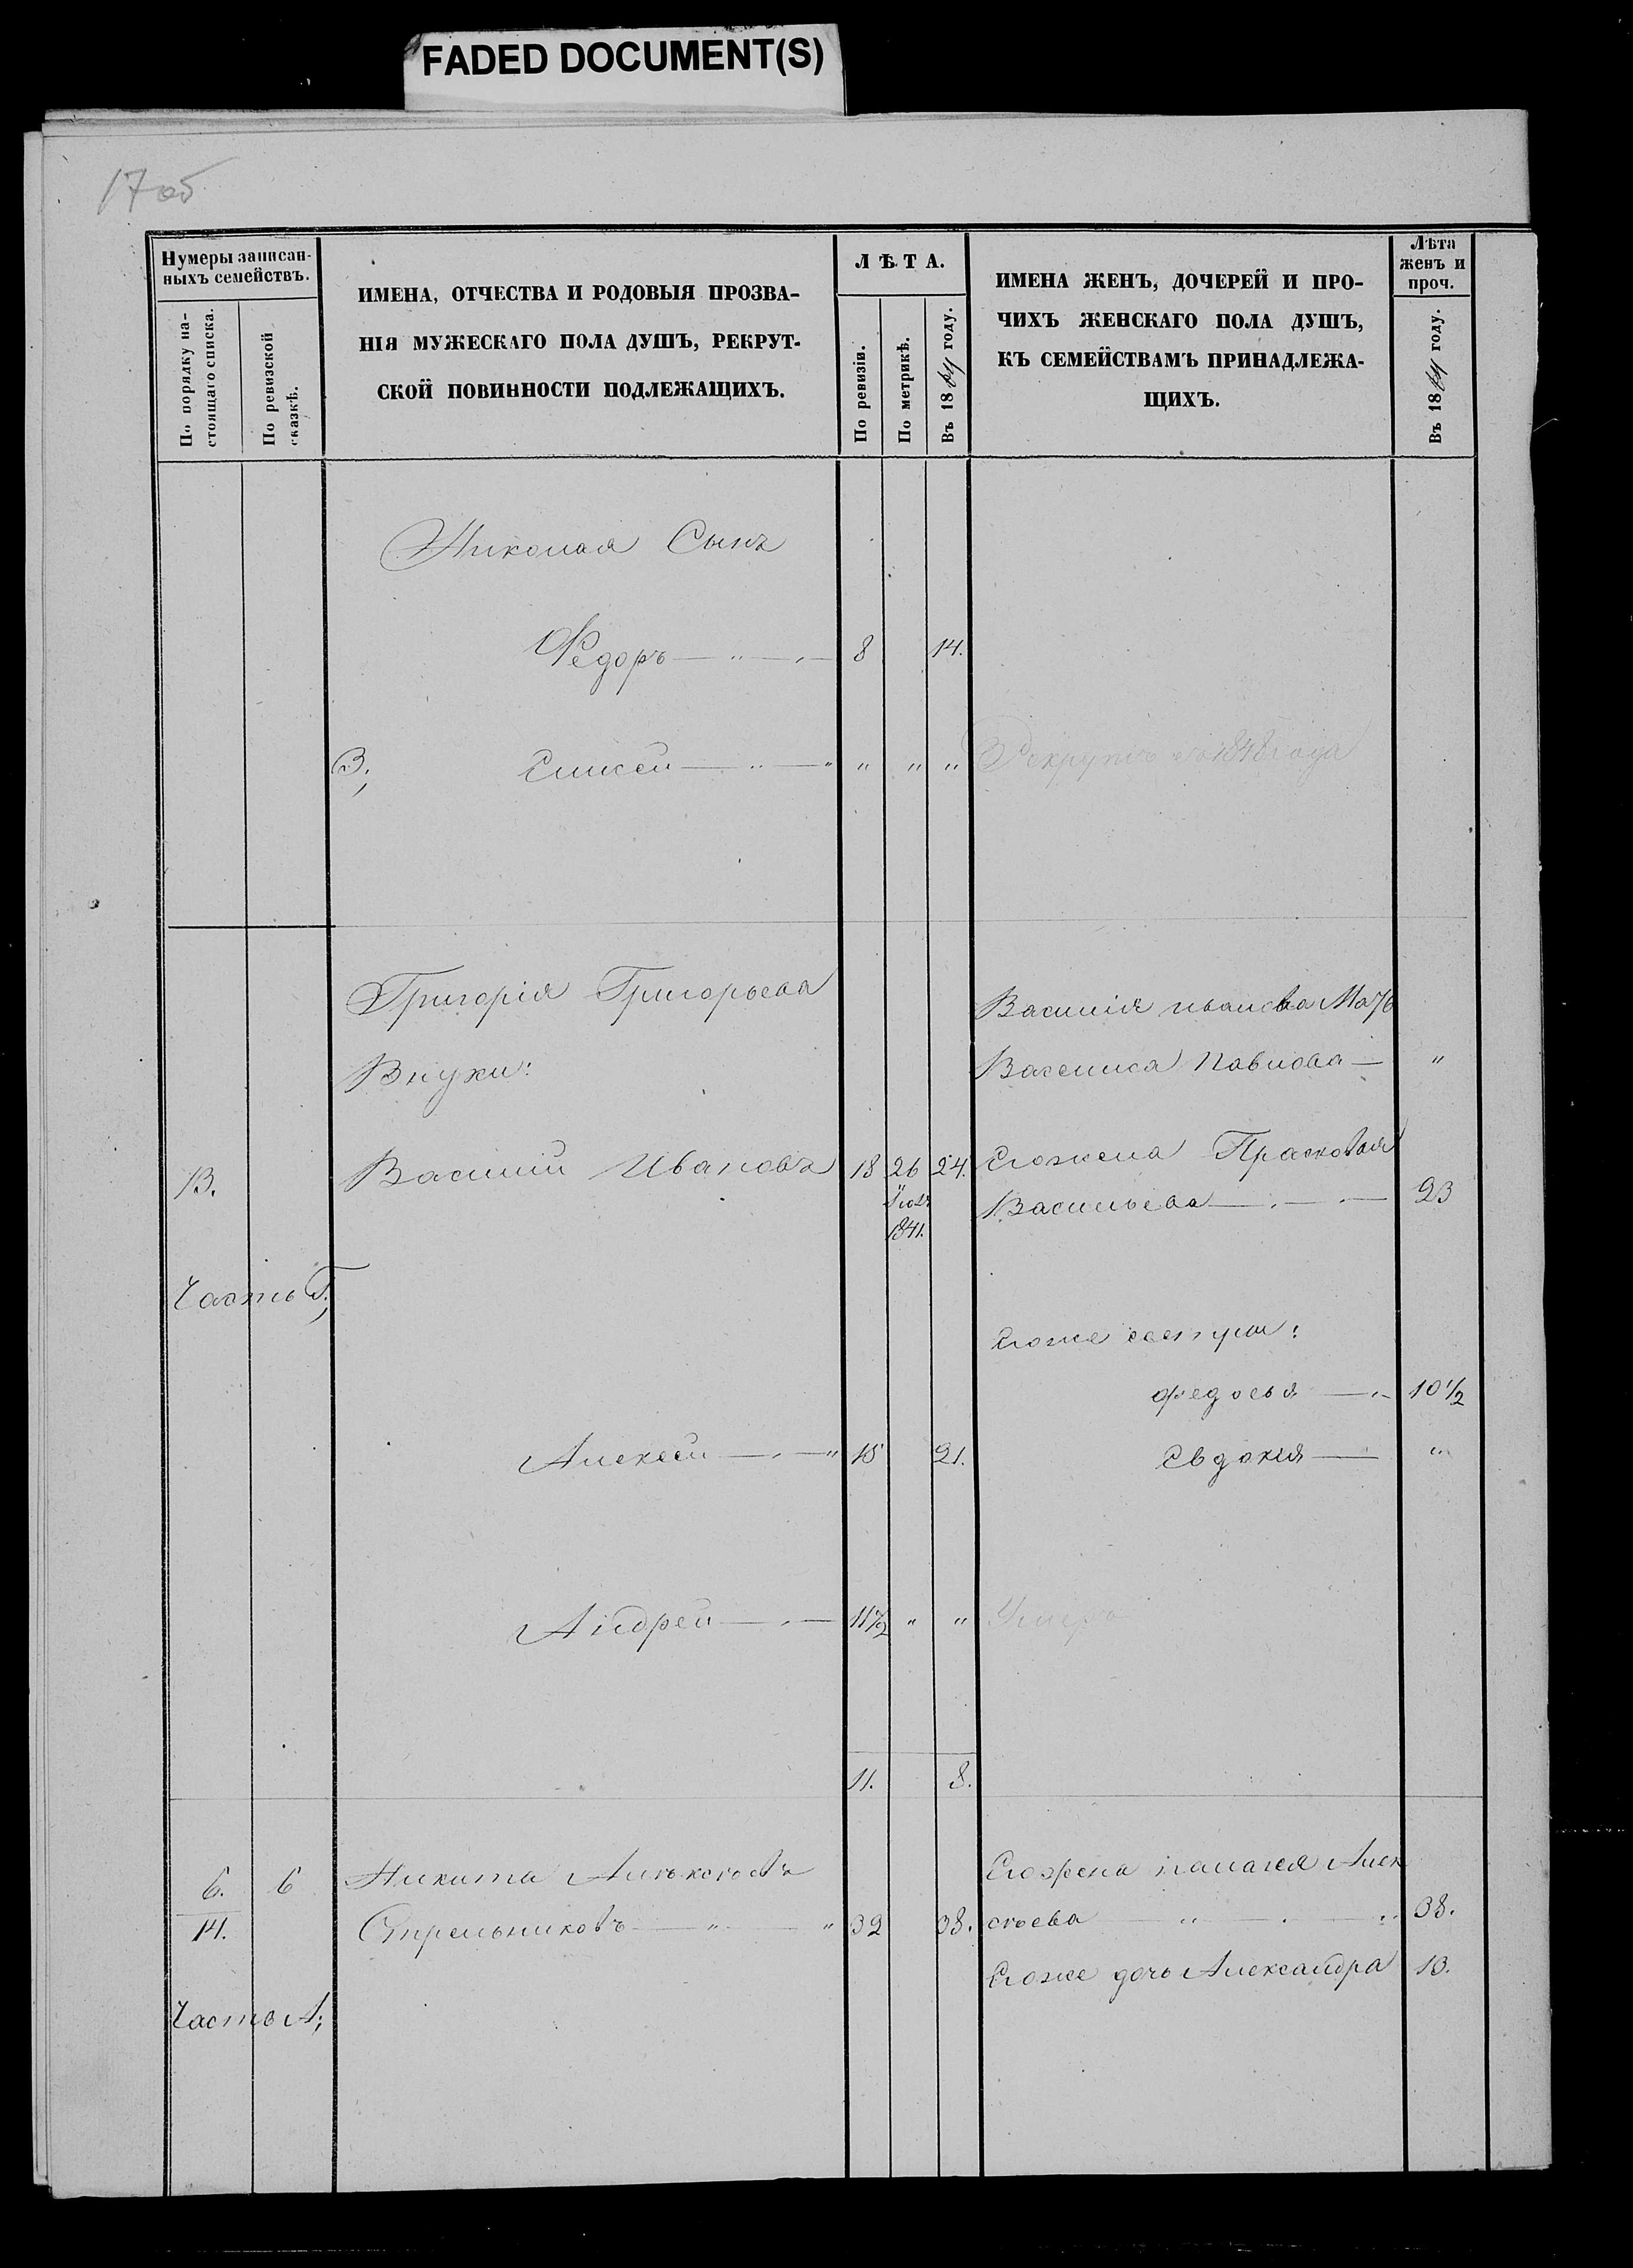 FADED DOCUMENT(S)
17 об
Нумеры записан-
ныхъ семействъ.
По порядку на-
стоящаго списка.
По ревизской
сказкѣ.
ИМЕНА, ОТЧЕСТВА И РОДОВЫЯ ПРОЗВА-
НІЯ МУЖЕСКАГО ПОЛА ДУШЪ, РЕКРУТ-
СКОЙ ПОВИННОСТИ ПОДЛЕЖАЩИХЪ.
ЛѢТА.
По ревизіи.
По метрикѣ.
Въ 1864 году.
ИМЕНА ЖЕНЪ, ДОЧЕРЕЙ И ПРО-
ЧИХЪ ЖЕНСКАГО ПОЛА ДУШЪ,
КЪ СЕМЕЙСТВАМЪ ПРИНАДЛЕЖА-
ЩИХЪ.
Лѣта
женъ и
проч.
Въ 1864 году.
Николая Сынъ
Федоръ — " — 8 14.
3, Елисей — " — " " " " Рекрутъ 1848 года
Григорія Григорьева
Василія иванова Мать
Внуки:
Василиса Павлова — "
13. Василій Ивановъ 18 26 24. Егожена Прасковья
Іюля Васильева — 23
1841.
Часть Г,
Егоже сестры:
Федосья — 10½
Алексей — " 15 21. Евдокия — "
Андрей — 11½ " " Умеръ
11. 8.
6. 6 Никита Алексеевъ Егожена Палагея Алек
14. Стрельниковъ — " — " 32 38. сеева " 38.
Егоже дочь Александра 13.
Часть А;